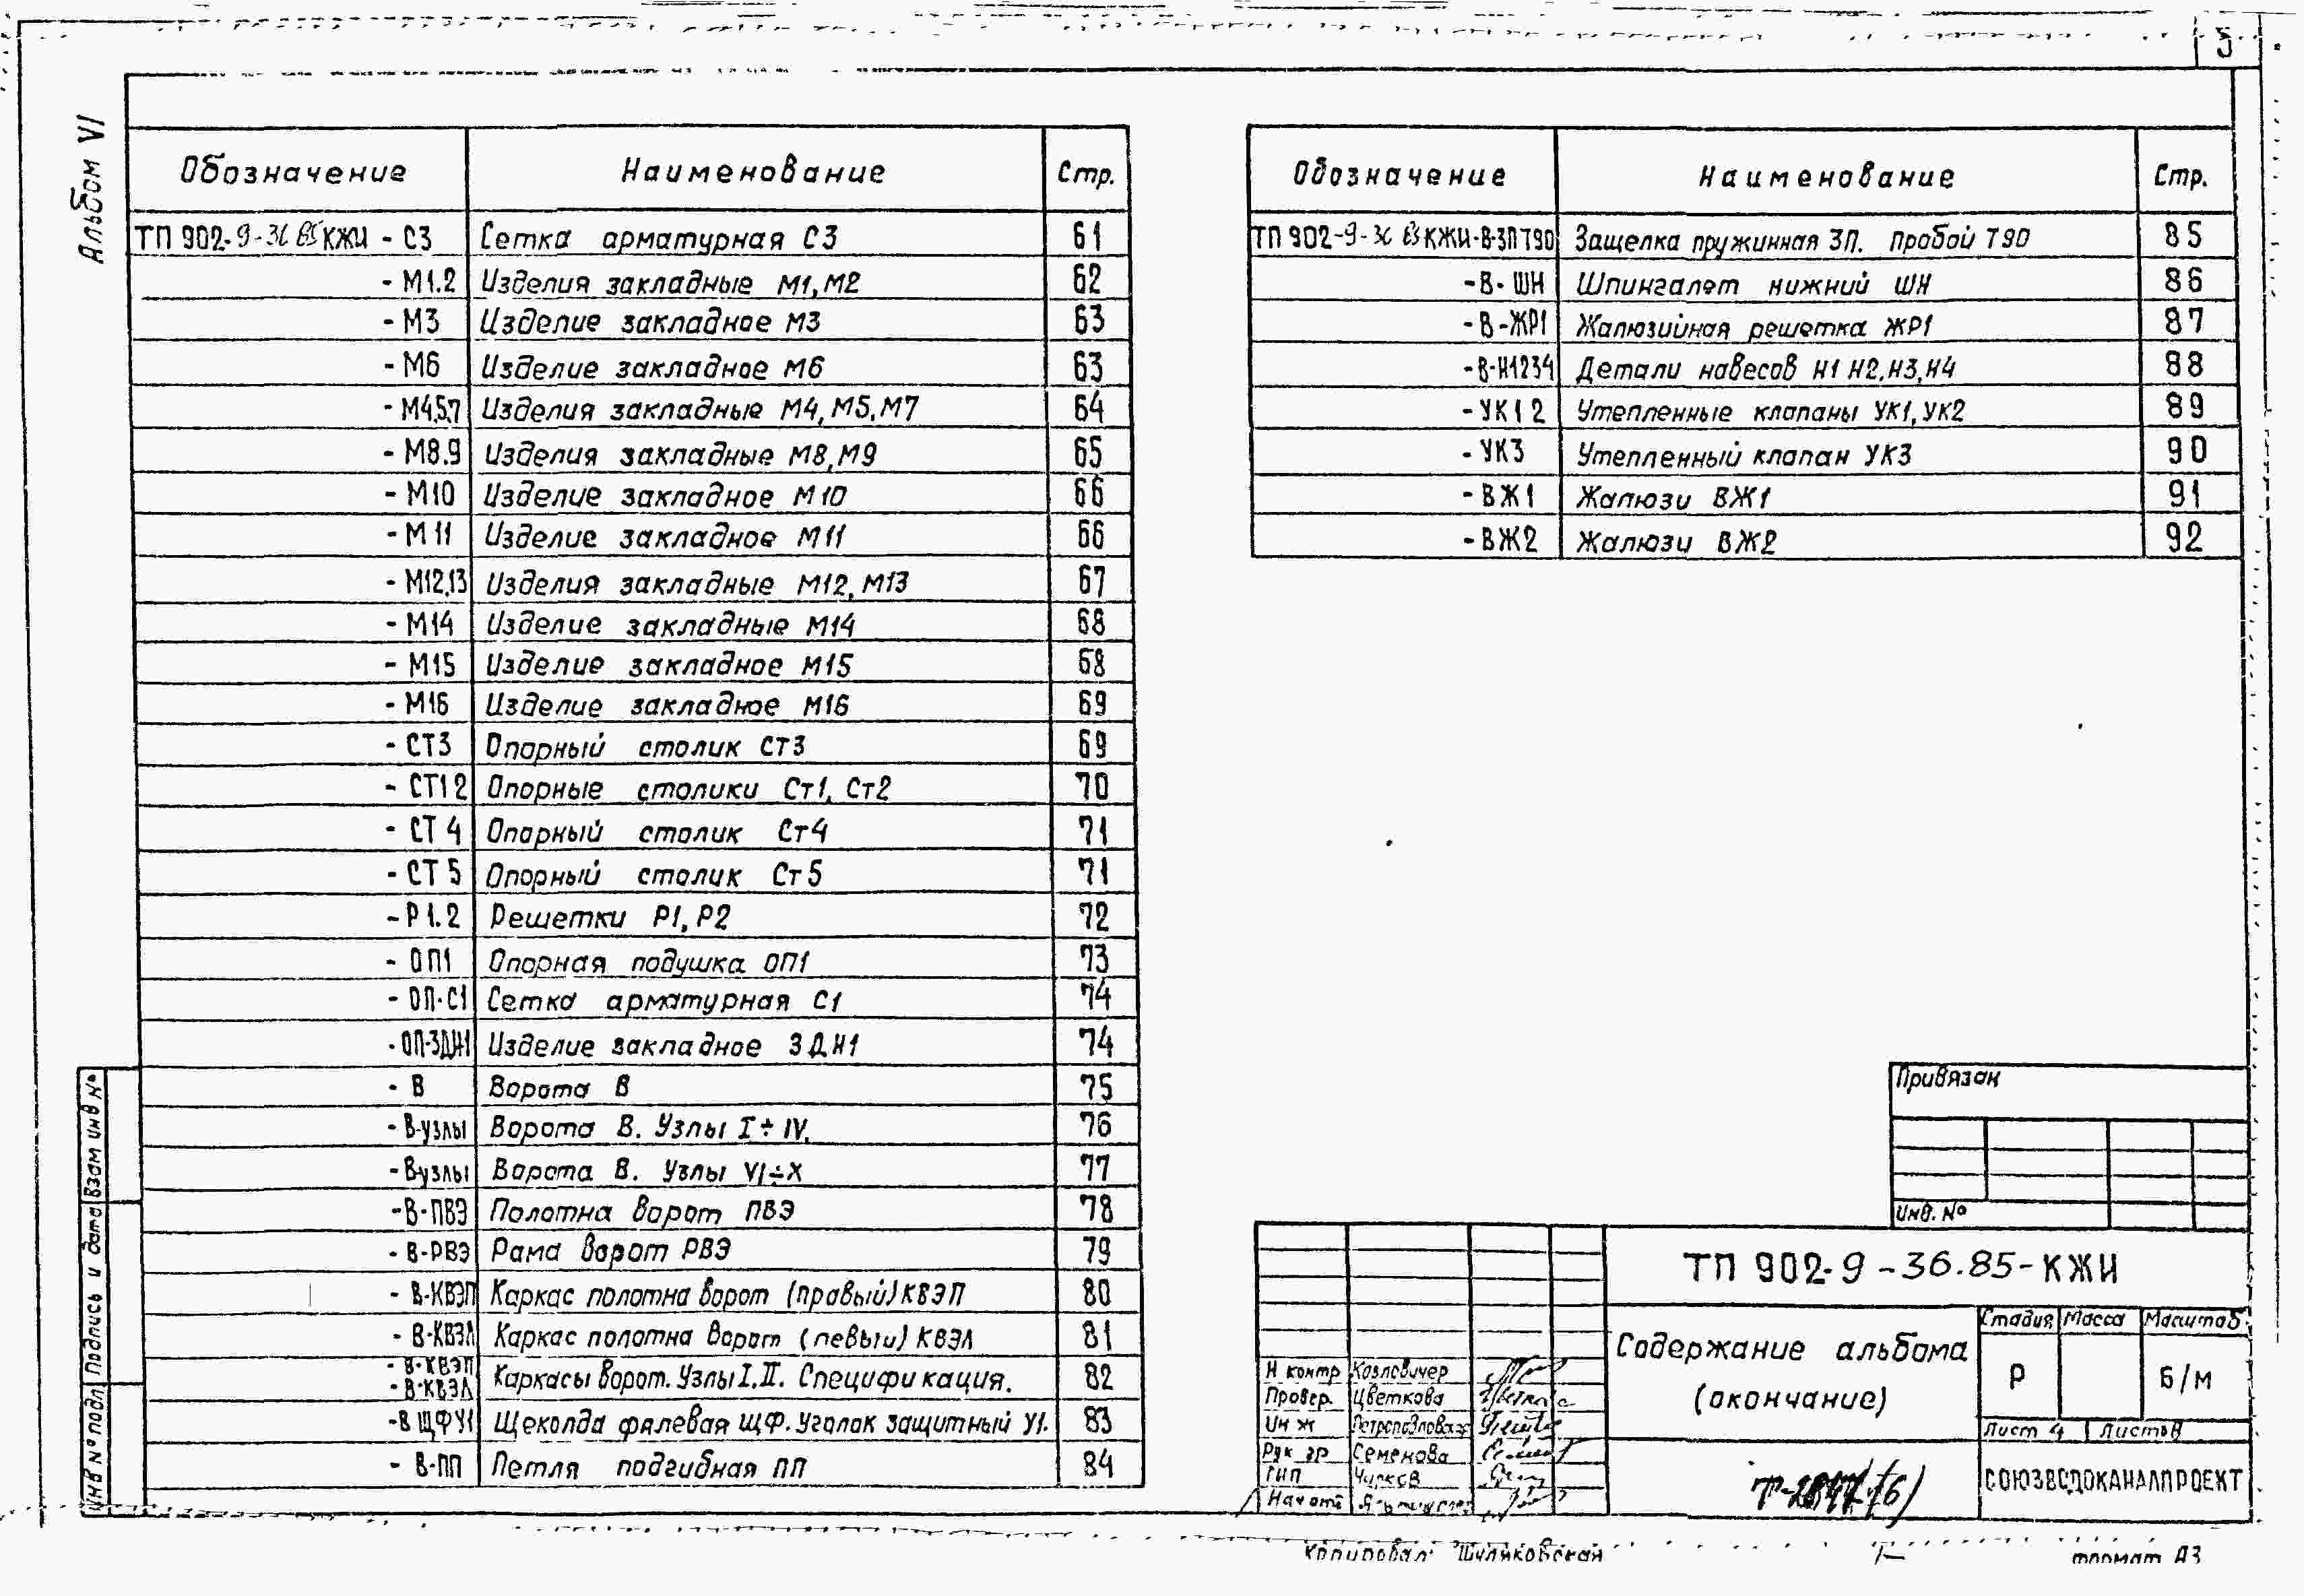 5
Альбом VI
Обозначение Наименование Стр.
ТП 902-9-36.85 КЖИ - С3 Сетка арматурная С3 61
- М1.2 Изделия закладные М1, М2 62
- М3 Изделие закладное М3 63
- М6 Изделие закладное М6 63
- М4,5,7 Изделия закладные М4, М5, М7 64
- М8.9 Изделия закладные М8, М9 65
- М10 Изделие закладное М10 66
- М11 Изделие закладное М11 66
- М12,13 Изделия закладные М12, М13 67
- М14 Изделие закладные М14 68
- М15 Изделие закладное М15 68
- М16 Изделие закладное М16 69
- СТ3 Опорный столик СТ3 69
- СТ1 2 Опорные столики Ст1, Ст2 70
- СТ 4 Опорный столик Ст4 71
- СТ 5 Опорный столик Ст5 71
- Р1.2 Решетки Р1, Р2 72
- ОП1 Опорная подушка ОП1 73
- ОП-С1 Сетка арматурная С1 74
- ОП-ЗДН1 Изделие закладное ЗДН1 74
- В Ворота В 75
- В-узлы Ворота В. Узлы I÷IV. 76
- В узлы Ворота В. Узлы VI÷X 77
- В-ПВЭ Полотна ворот ПВЭ 78
- В-РВЭ Рама ворот РВЭ 79
- В-КВЭП Каркас полотна ворот (правый) КВЭП 80
- В-КВЭЛ Каркас полотна ворот (левый) КВЭЛ 81
- В-КВЭП
- В-КВЭЛ Каркасы ворот. Узлы I, II. Спецификация. 82
- В ЩФУ1 Щеколда фалевая ЩФ. Уголок защитный У1. 83
- В-ПП Петля подгибная ПП 84
Обозначение Наименование Стр.
ТП 902-9-36.85 КЖИ-В-ЗПТ90 Защелка пружинная ЗП. Пробой Т90 85
- В-ШН Шпингалет нижний ШН 86
- В-ЖР1 Жалюзийная решетка ЖР1 87
- В-Н1234 Детали навесов Н1 Н2, Н3, Н4 88
- УК1 2 Утепленные клапаны УК1, УК2 89
- УК3 Утепленный клапан УК3 90
- ВЖ1 Жалюзи ВЖ1 91
- ВЖ2 Жалюзи ВЖ2 92
Привязан
Инв. №
ТП 902-9-36.85-КЖИ
Содержание альбома
(окончание)
Стадия Масса Масштаб
Р Б/м
Лист 4 Листов
СОЮЗВОДОКАНАЛПРОЕКТ
Н контр Козлович
Провер. Цветкова
Инж Петропавловская
Рук гр Семенова
ГИП Чурков
Нач отд
Инв № подл Подпись и дата Взам инв №
Копировал: Шуляковская
формат А3